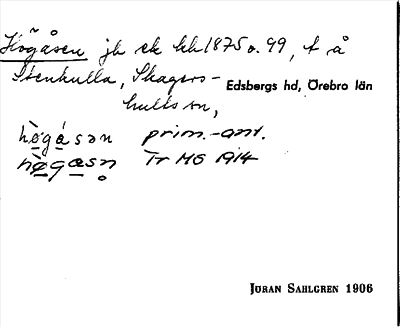 Högåsen jb ek hhl 1875 o. 99, t å
Stenkulla, Skagers-
hults sn,
Edsbergs hd, Örebro län
hø̀gásən prim.-ant.
hø̀gåsn̥ Tr MG 1914
JÖRAN SAHLGREN 1906